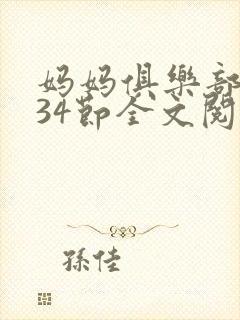 妈妈俱樂部
34節全文閱
孫佳